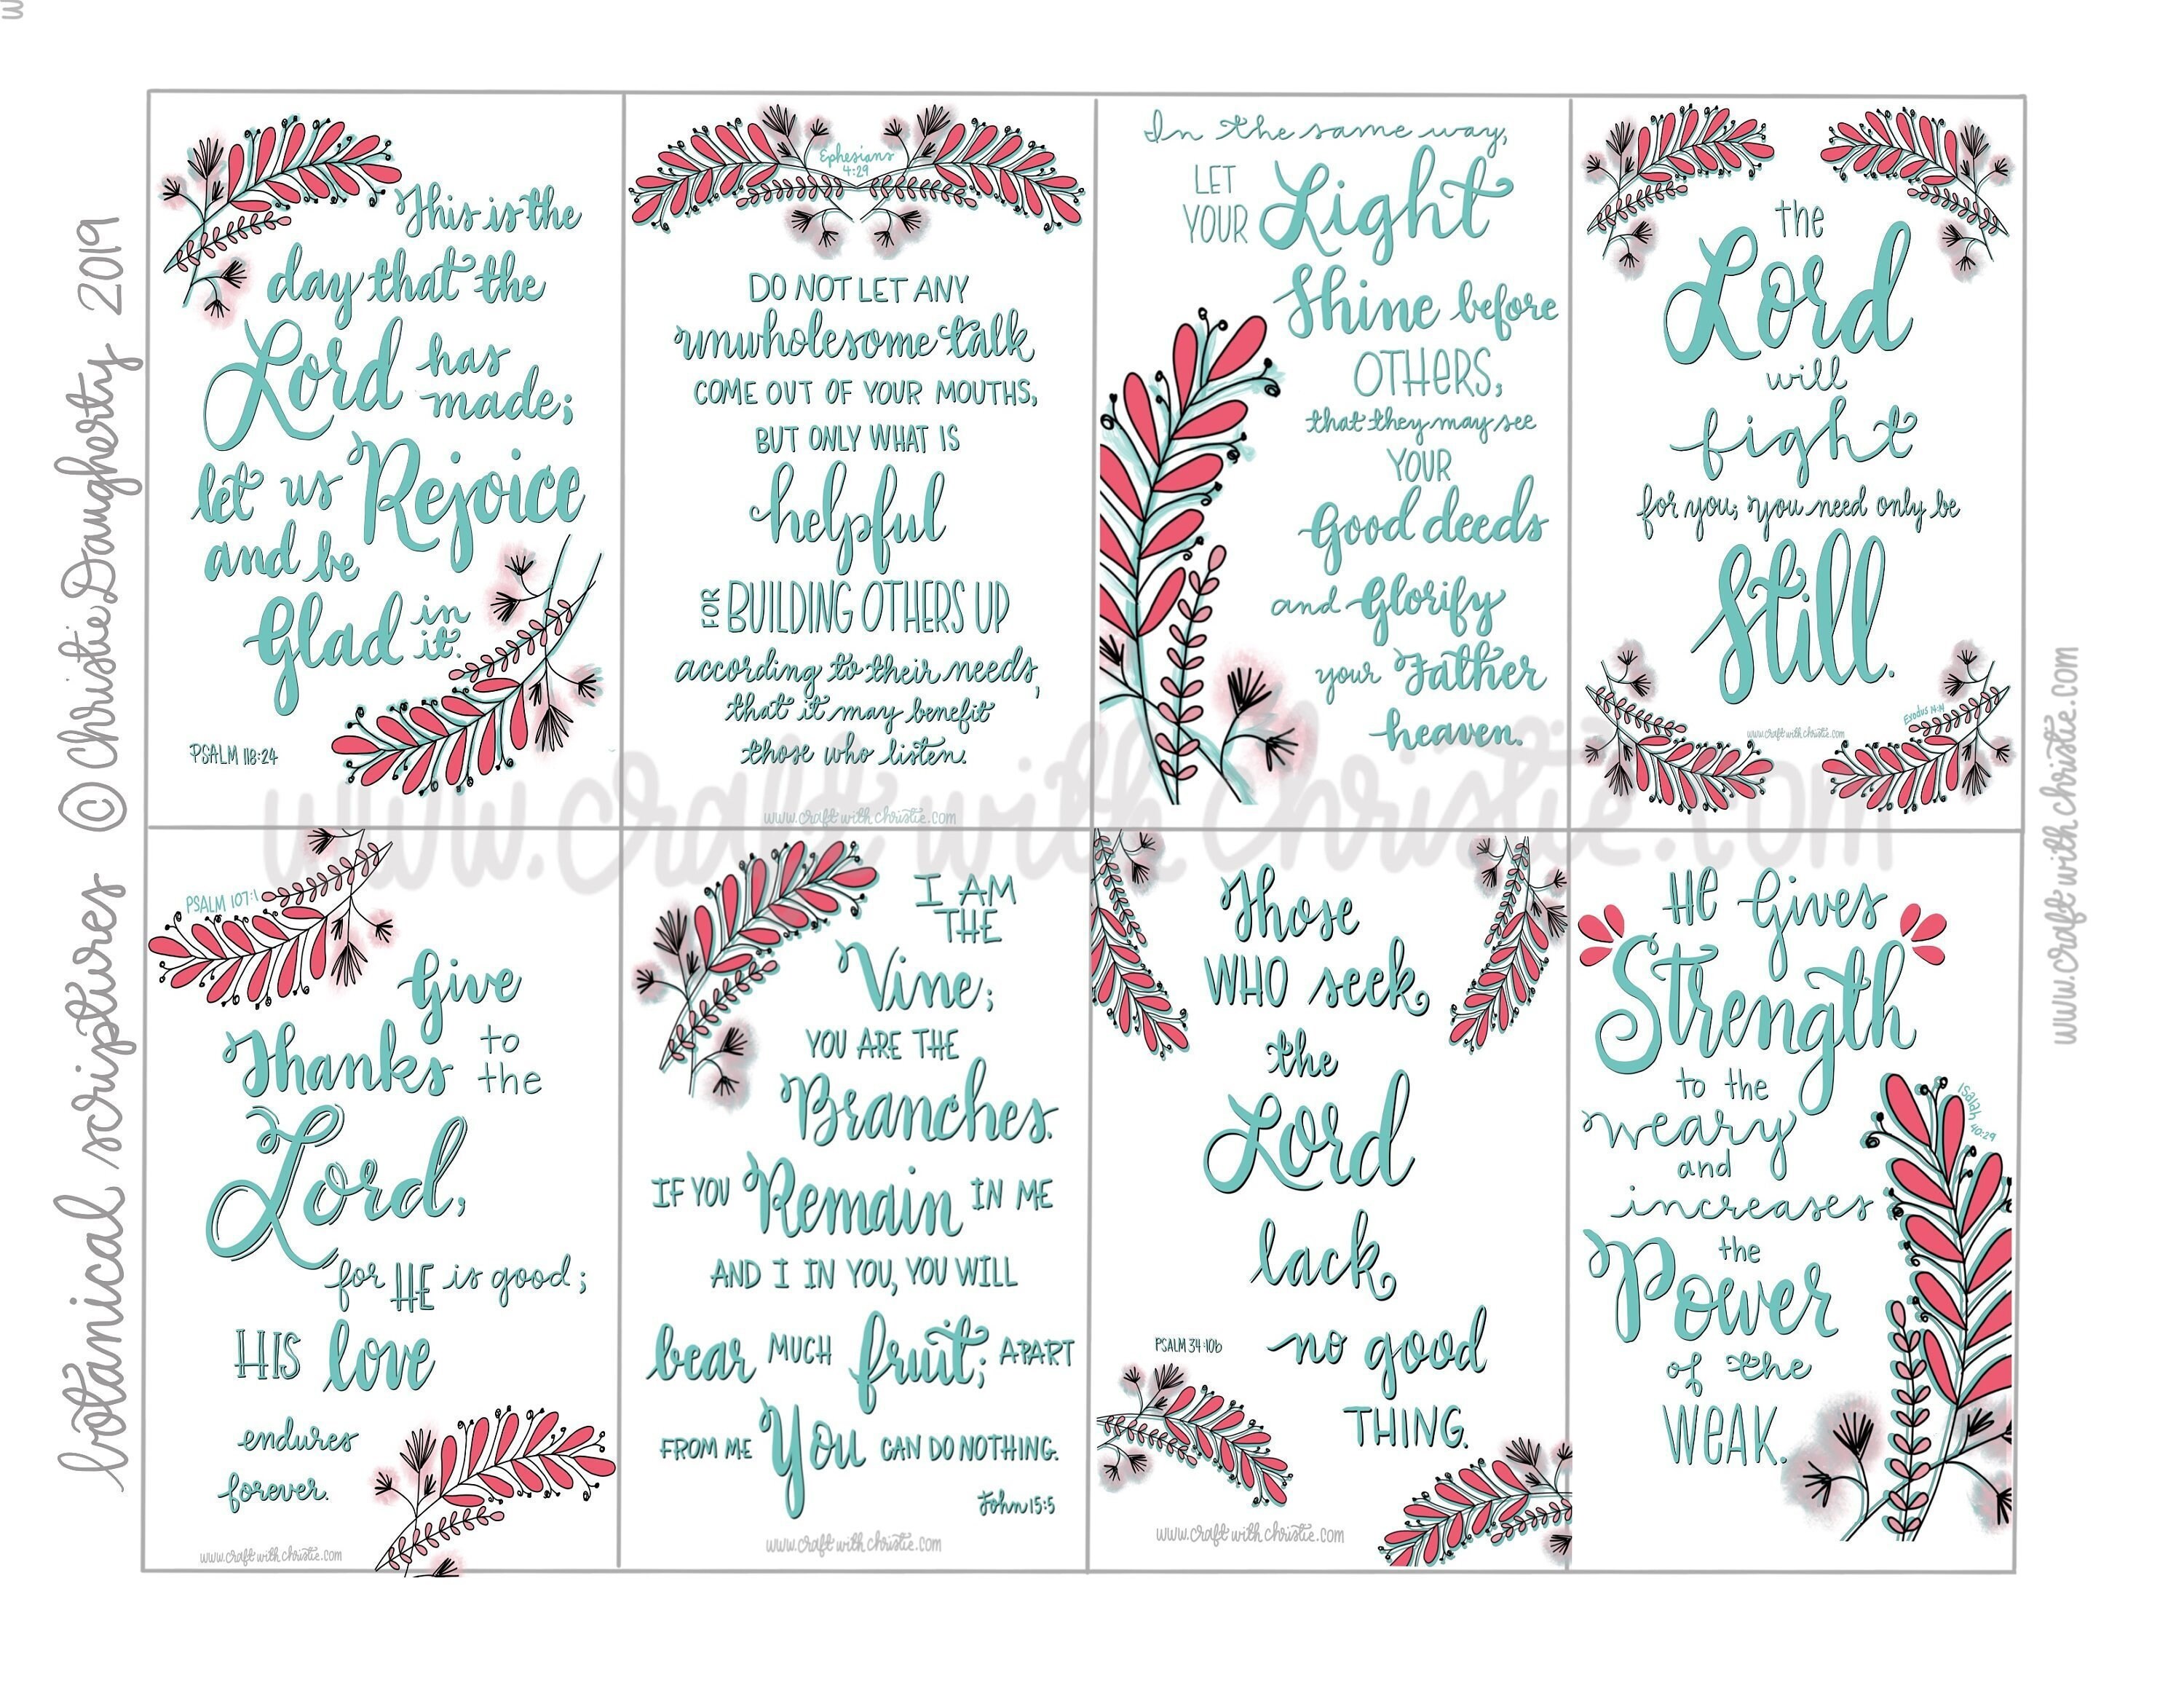 © Christie Daugherty 2019
botanical scriptures
www.craft with christie.com
www.craft with christie.com
This is the
day that the
Lord has
made;
let us Rejoice
and be
Glad in
it.
PSALM 118:24
Ephesians
4:29
DO NOT LET ANY
unwholesome talk
COME OUT OF YOUR MOUTHS,
BUT ONLY WHAT IS
helpful
FOR BUILDING OTHERS UP
according to their needs,
that it may benefit
those who listen.
www.craft with christie.com
In the same way,
LET
YOUR Light
Shine before
OTHERS,
that they may see
YOUR
Good deeds
and Glorify
your Father
heaven.
the
Lord
will
fight
for you; you need only be
Still.
Exodus 14:14
www.craft with christie.com
PSALM 107:1
Give
Thanks to
the
Lord,
for HE is good;
HIS love
endures
forever.
www.craft with christie.com
I AM
THE
Vine;
YOU ARE THE
Branches.
IF YOU Remain IN ME
AND I IN YOU, YOU WILL
bear MUCH fruit; APART
FROM ME You CAN DO NOTHING.
John 15:5
www.craft with christie.com
Those
WHO seek
the
Lord
lack
no good
THING.
PSALM 34:10b
www.craft with christie.com
HE Gives
Strength
to the
weary
and
increases
the
Power
of the
WEAK.
Isaiah 40:29